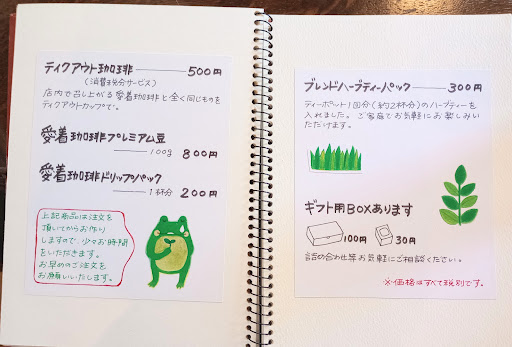 テイクアウト珈琲 ―― 500円
（消費税分サービス）
店内で召し上がる愛着珈琲と全く同じものを
テイクアウトカップで。
愛着珈琲プレミアム豆
―― 100g 800円
愛着珈琲ドリップパック
―― 1杯分 200円
上記商品は注文を
頂いてからお作り
しますので、少々お時間
をいただきます。
お早めのご注文を
お願いいたします。
ブレンドハーブティーパック ―― 300円
ティーポット1回分(約2杯分)のハーブティーを
入れました。ご家庭でお気軽にお楽しみ
いただけます。
ギフト用BOXあります
100円 30円
詰め合わせ等お気軽にご相談ください。
※価格はすべて税別です。